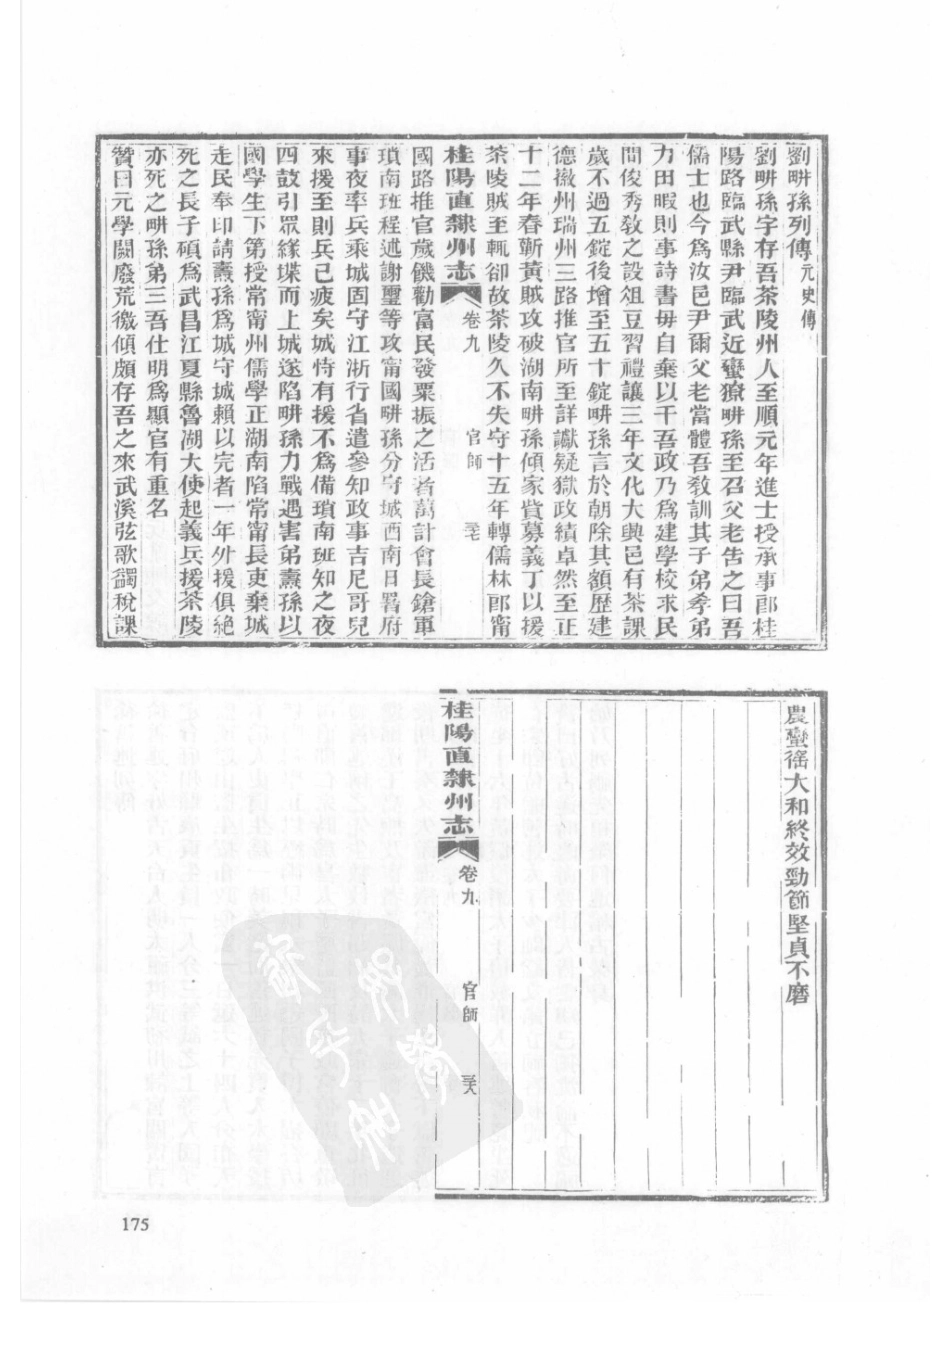 劉畊孫列傳元史傳
劉畊孫字存吾茶陵州人至順元年進士授承事郎桂
陽路臨武縣尹臨武近蠻獠畊孫至召父老告之曰吾
儒士也今爲汝邑尹爾父老當體吾敎訓其子弟孝弟
力田暇則事詩書毋自棄以干吾政乃爲建學校求民
間俊秀敎之設俎豆習禮讓三年文化大興邑有茶課
歲不過五錠後增至五十錠畊孫言於朝除其額歷建
德徽州瑞州三路推官所至詳讞疑獄政績卓然至正
十二年春蘄黃賊攻破湖南畊孫傾家貲募義丁以援
茶陵賊至輒卻故茶陵久不失守十五年轉儒林郎甯
桂陽直隸州志 卷九 官師 三七
國路推官歲饑勸富民發粟振之活者萬計會長鎗軍
瑣南班程述謝璽等攻甯國畊孫分守城西南日署府
事夜率兵乘城固守江浙行省遣參知政事吉尼哥兒
來援至則兵已疲矣城恃有援不爲備瑣南班知之夜
四鼓引眾緣堞而上城遂陷畊孫力戰遇害弟燾孫以
國學生下第授常甯州儒學正湖南陷常甯長吏棄城
走民奉印請燾孫爲城守城賴以完者一年外援俱絕
死之長子碩爲武昌江夏縣魯湖大使起義兵援茶陵
亦死之畊孫弟三吾仕明爲顯官有重名
贊曰元學闕廢荒徼傾頗存吾之來武溪弦歌蠲稅課
農蠻徭大和終效勁節堅貞不磨
桂陽直隸州志 卷九 官師 三八
175